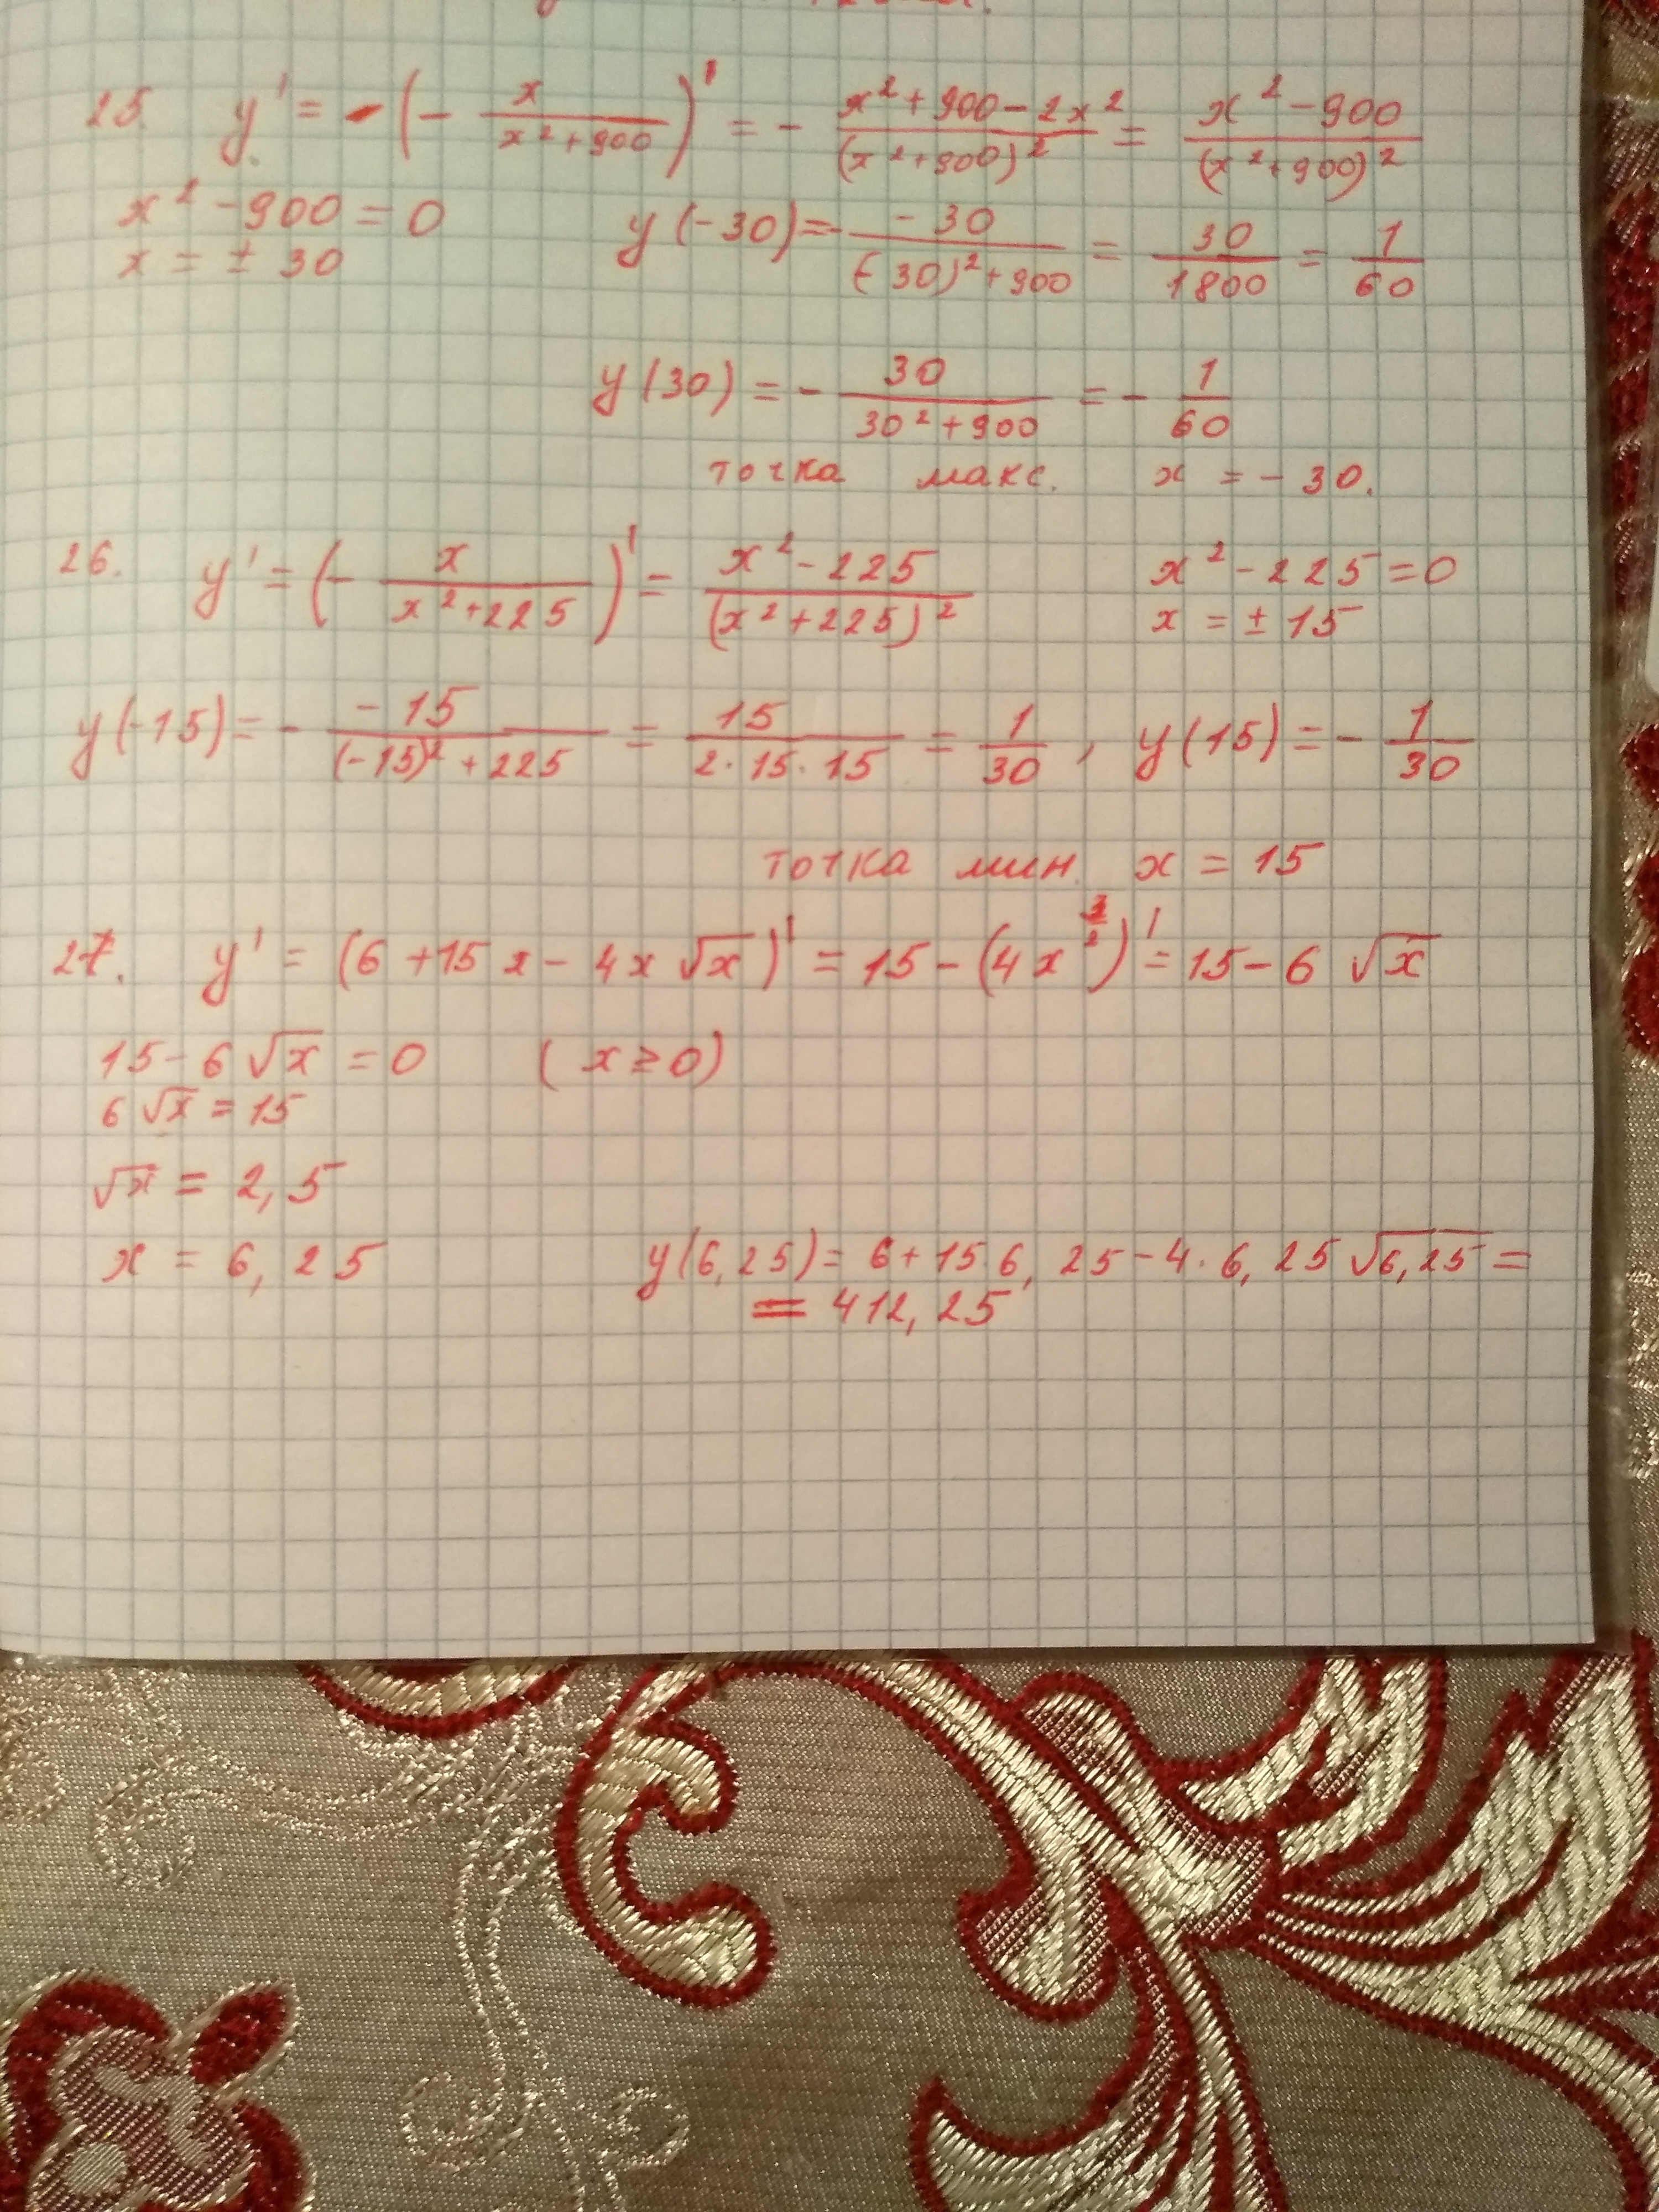 25. y' = -(- x/(x²+900))' = - (x²+900-2x²)/(x²+900)² = (x²-900)/(x²+900)²
x²-900=0
x = ± 30
y(-30)=- -30/((-30)²+900) = 30/1800 = 1/60
y(30) = - 30/(30²+900) = - 1/60
точка макс. x = -30.
26. y' = (- x/(x²+225))' = (x²-225)/(x²+225)²
x²-225=0
x = ± 15
y(-15)= - -15/((-15)²+225) = 15/(2·15·15) = 1/30 , y(15) = - 1/30
точка мин. x = 15
27. y' = (6+15x-4x√x)' = 15-(4x^(3/2))' = 15-6√x
15-6√x = 0 (x≥0)
6√x = 15
√x = 2,5
x = 6,25
y(6,25)= 6+15·6,25-4·6,25√6,25 =
= 412,25